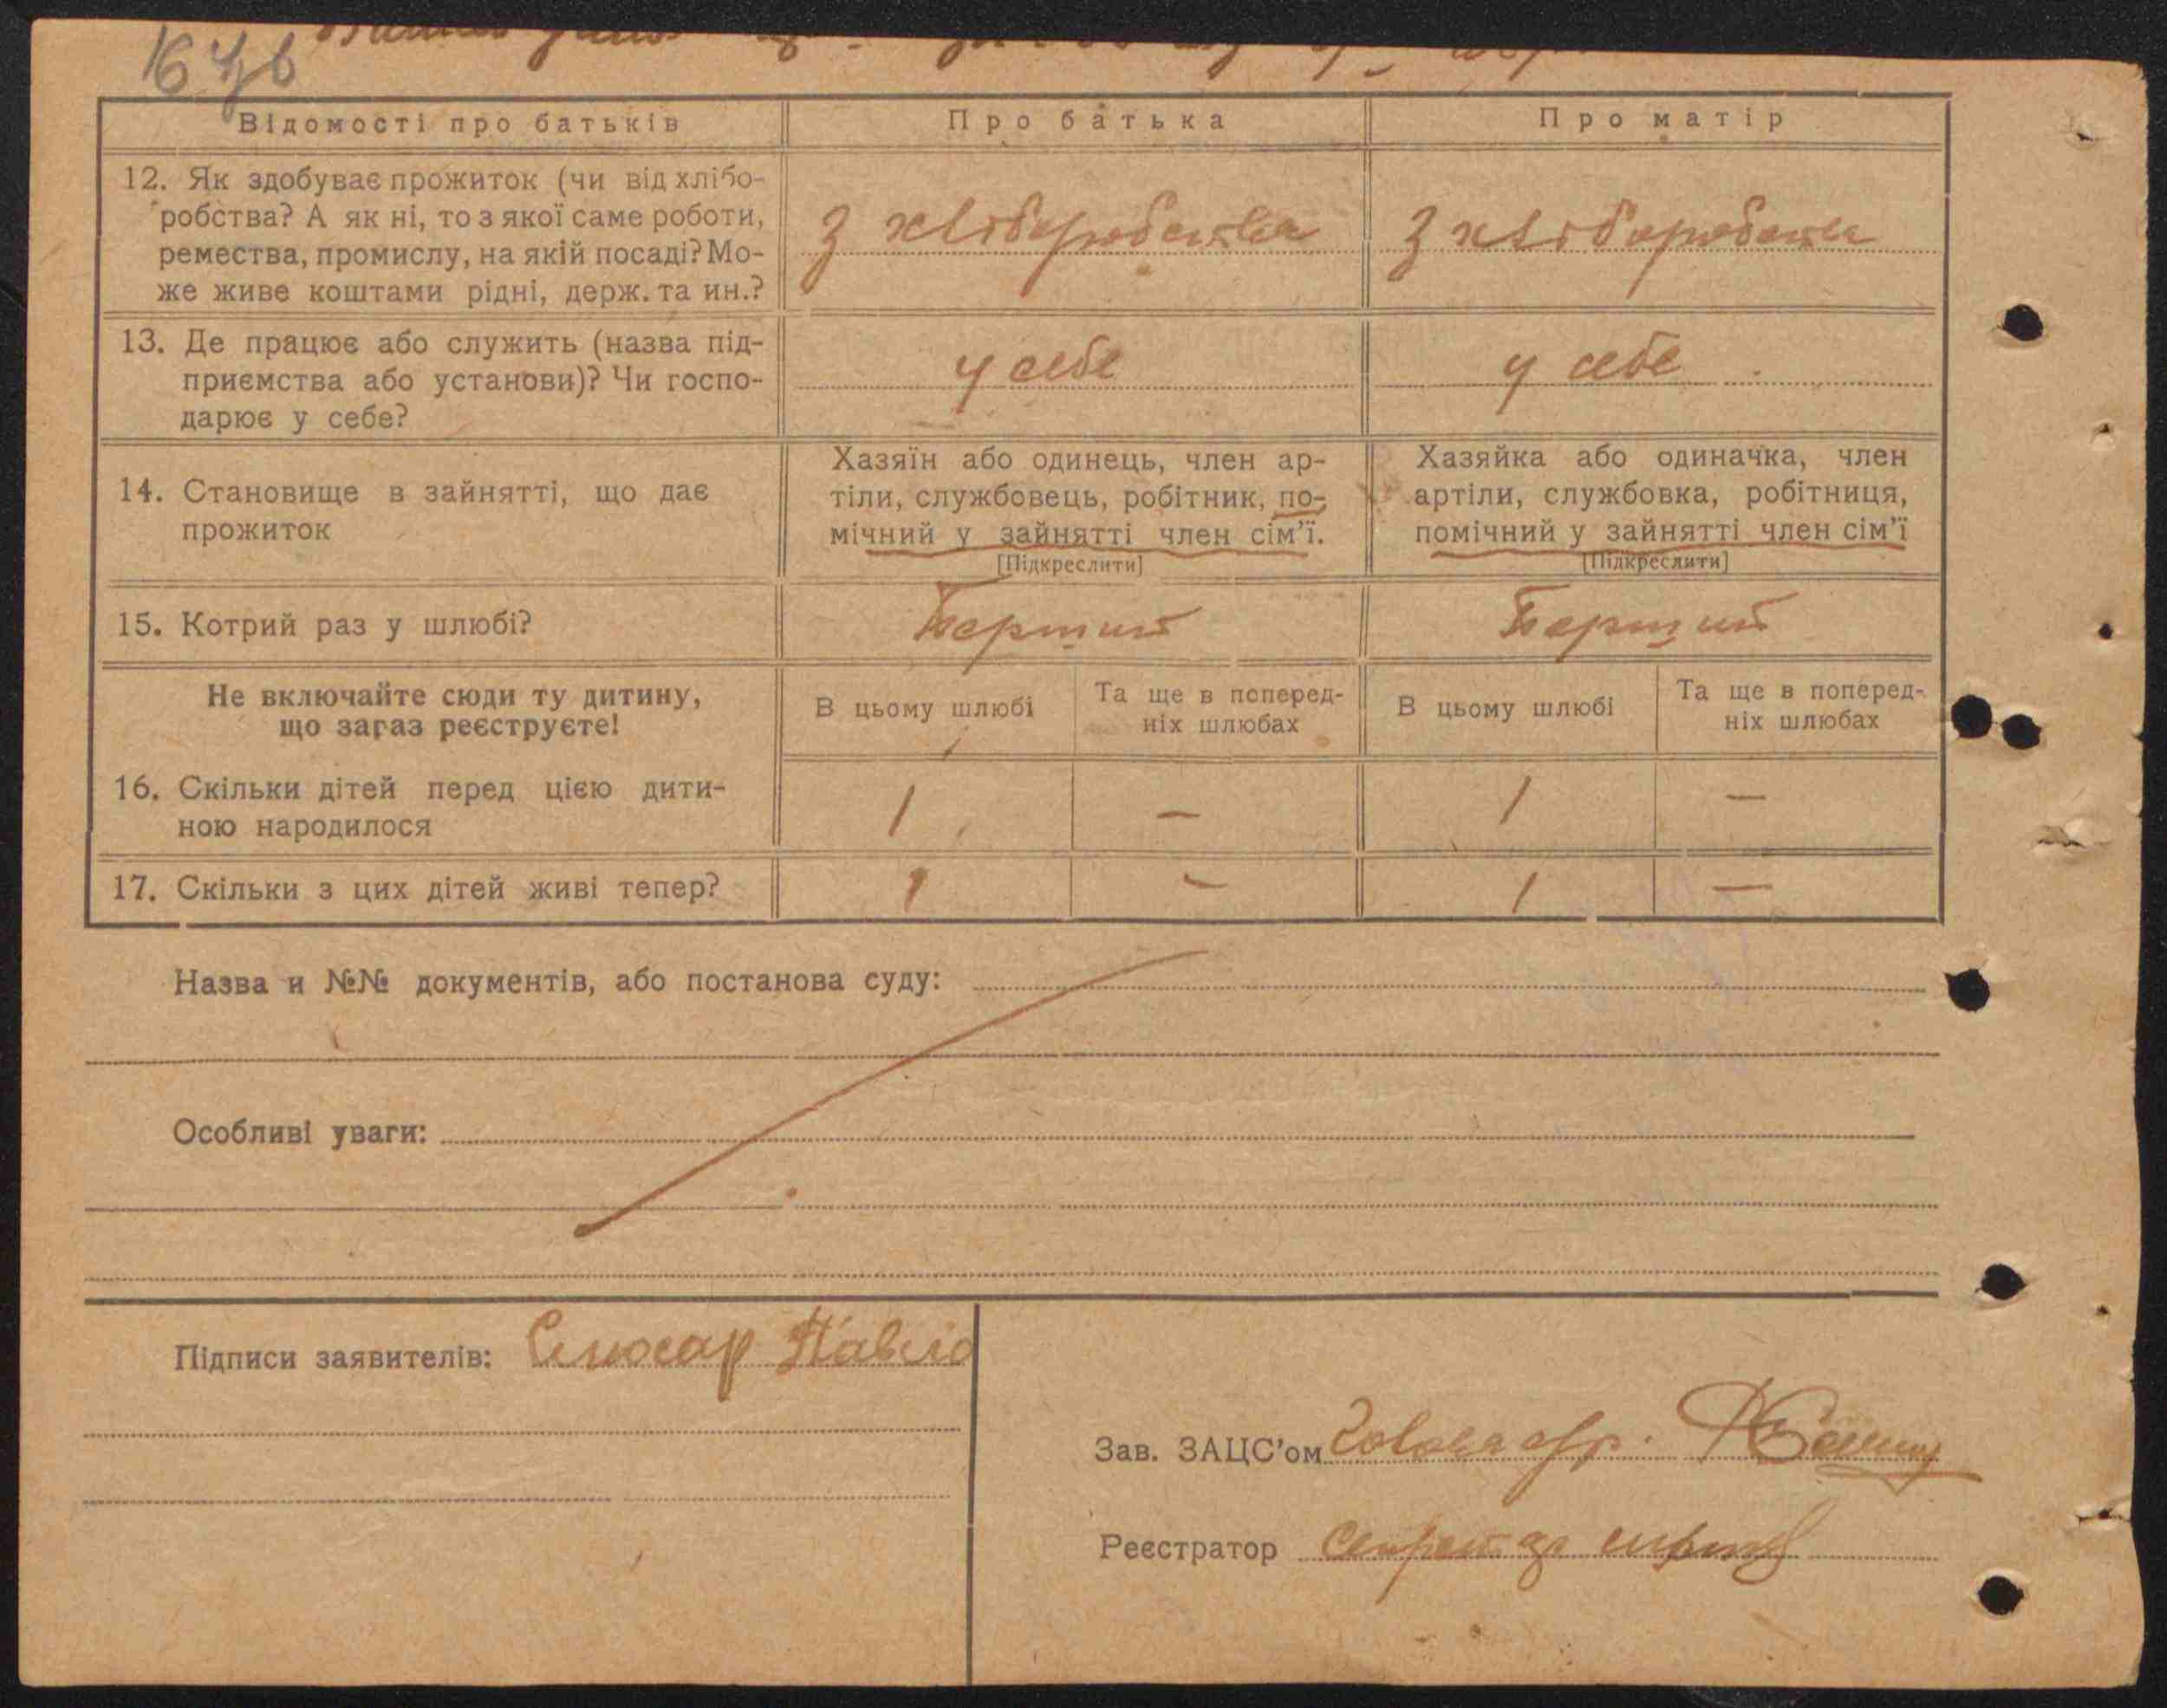 Відомості про батьків
Про батька
Про матір
12. Як здобуває прожиток (чи від хлібо-
робства? А як ні, то з якої саме роботи,
ремества, промислу, на якій посаді? Мо-
же живе коштами рідні, держ. та ин.?
З хліборобства
З хліборобства
13. Де працює або служить (назва під-
приємства або установи)? Чи госпо-
дарює у себе?
у себе
у себе
14. Становище в зайнятті, що дає
прожиток
Хазяїн або одинець, член ар-
тіли, службовець, робітник, по-
мічний у зайнятті член сім'ї.
[Підкреслити]
Хазяйка або одиначка, член
артіли, службовка, робітниця,
помічний у зайнятті член сім'ї
[Підкреслити]
15. Котрий раз у шлюбі?
Перший
Перший
Не включайте сюди ту дитину,
що зараз реєструєте!
В цьому шлюбі
Та ще в поперед-
ніх шлюбах
В цьому шлюбі
Та ще в поперед-
ніх шлюбах
16. Скільки дітей перед цією дити-
ною народилося
1
—
1
—
17. Скільки з цих дітей живі тепер?
1
—
1
—
Назва и №№ документів, або постанова суду:
Особливі уваги:
Підписи заявителів: Слюсар Павло
Зав. ЗАЦС'ом Голова с/р.
Реєстратор Секрет